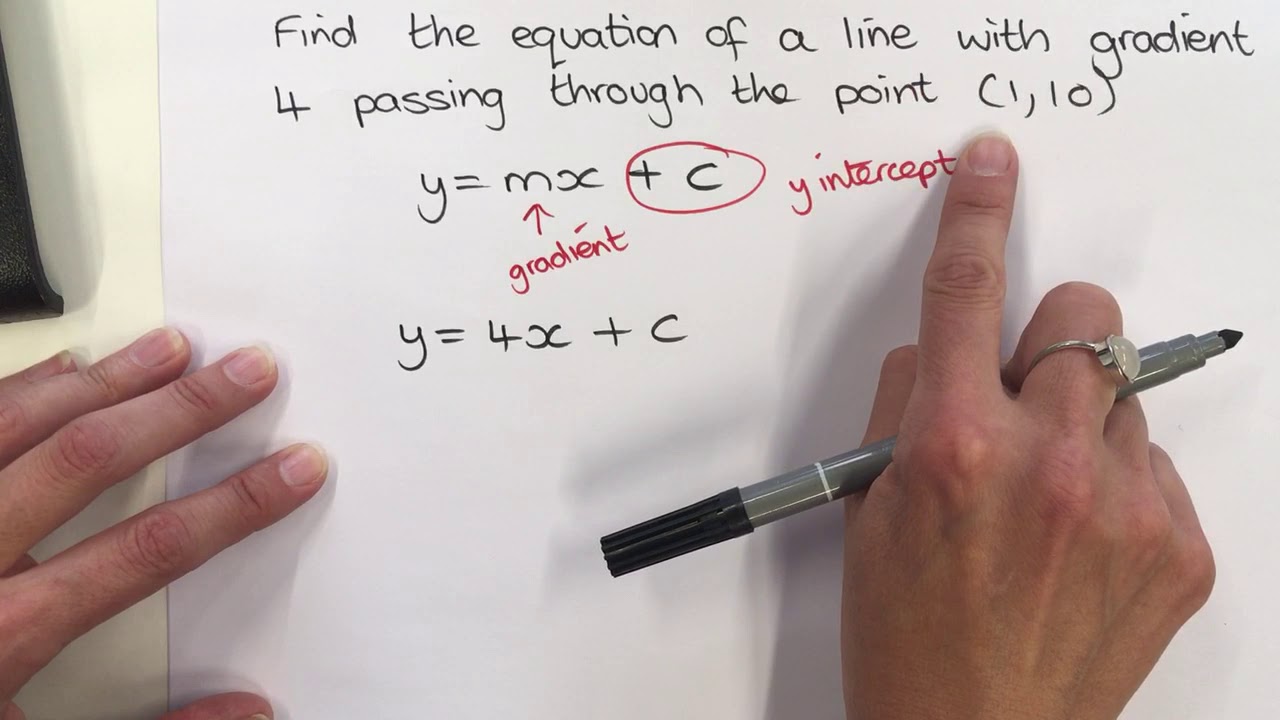 Find the equation of a line with gradient
4 passing through the point (1, 10)
y = mx + c y intercept
↑
gradient
y = 4x + c